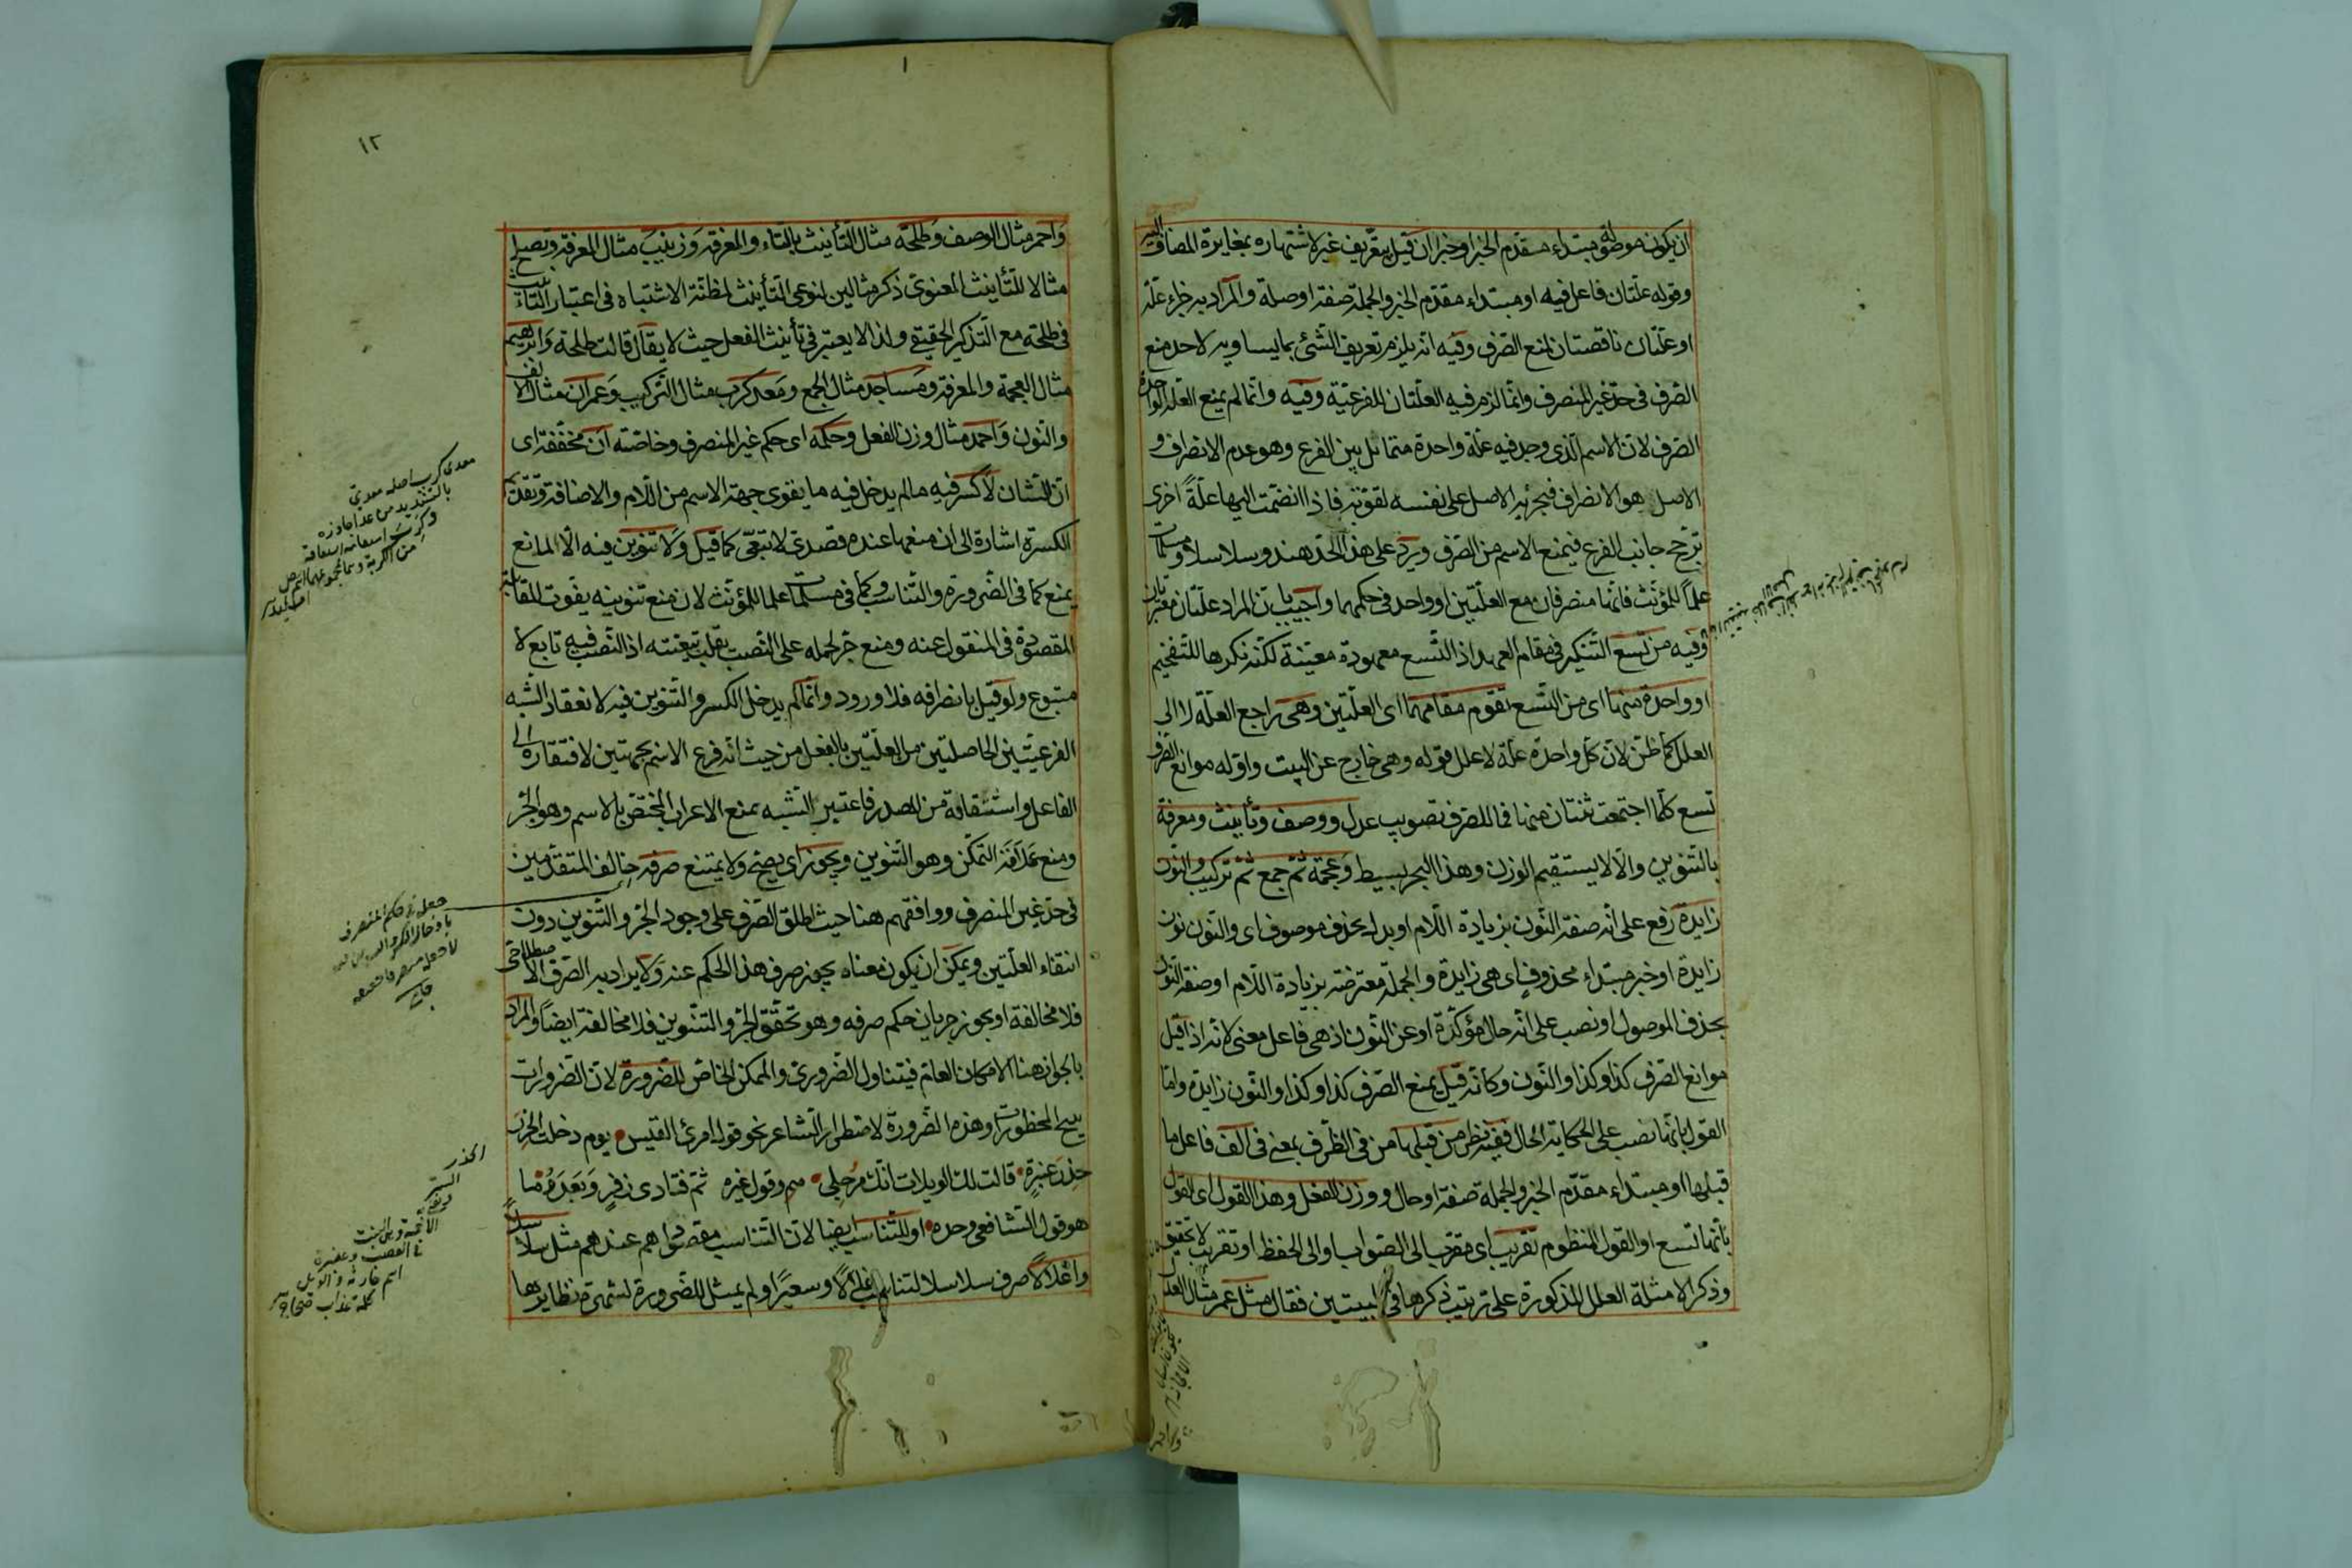 ان يكون موصولة مبتداء مقدم الخبر او خبر ان قيل بتعريف غير لاشتهاره بمغايرة المضاف اليه
وقوله علتان فاعل فيه او مبتداء مقدم الخبر والجملة صفة او صلة والمراد به جزاء علة
او علتان ناقصتان لمنع الصرف وفيه انه يلزم تعريف الشئ بما يساويه لاخذ منع
الصرف في حد غير المنصرف وانما لزم فيه العلتان للفرعية وفيه وانما لم يمنع العلة الواحدة
الصرف لان الاسم الذى وجد فيه علة واحدة متمائل بين الفرع وهو عدم الانصراف و
الاصل هو الانصراف فيجره الاصل على نفسه لقوته فاذا انضمت اليها علة اخرى
ترجح جانب الفرع فيمنع الاسم من الصرف ويرد على هذا الحد هند وسلاسلا ومسلمات
علماً للمؤنث فانها منصرفان مع العلتين او واحد في حكمهما واجيب بان المراد علتان معتبرتان
وفيه من تسع التنكير في مقام العهد اذ التسع معهودة معينة لكنه نكرها للتفخيم
او واحدة منها اى من التسع تقوم مقامهما اى العلتين وهى راجع العلة لا الى
العلل كما ظن لان كل واحدة علة لا علل قوله وهى خارج عن البيت واوله موانع الصرف
تسع كلما اجتمعت ثنتان منها فما للصرف تصويب عدل ووصف وتأنيث ومعرفة
بالتنوين والا لا يستقيم الوزن وهذا البحر بسيط وعجمة ثم جمع ثم تركيب والنون
زايدة رفع على انه صفة النون بزيادة اللام او بدل بحذف موصوف اى والنون نون
زايدة او خبر مبتداء محذوف اى هى زايدة والجملة معترضة بزيادة اللام او صفة النون
بحذف الموصول او نصب على انه حال مؤكدة او عن النون اذ هى فاعل معنى لانه اذا قيل
موانع الصرف كذا وكذا والنون وكانه قيل يمنع الصرف كذا وكذا والنون زايدة واما
القول بانها نصب على الحكاية الحال ففيه نظر من قبلها من فى الظرف بمعنى فى الف فاعل ما
قبلها او مبتداء مقدم الخبر والجملة صفة او حال ووزن الفعل وهذا القول اى القول
بانها تسع او القول المنظوم تقريب اى مقرب الى الصواب او الى الحفظ او تقريب لا تحقيق
وذكر الامثلة العلل المذكورة على ترتيب ذكرها فى البيتين فقال مثل عمر مثال العدل
١٢
واحمر مثال الوصف وطلحة مثال التأنيث بالتاء والمعرفة وزينب مثال المعرفة ويصلح
مثالا للتأنيث المعنوى ذكر مثالين لنوعى التأنيث لمظنة الاشتباه فى اعتبار التأنيث
فى طلحة مع التذكير الحقيقى ولذا لا يعتبر فى تأنيث الفعل حيث لا يقال قالت طلحة وابرهيم
مثال العجمة والمعرفة ومساجد مثال الجمع ومعدى كرب مثال التركيب وعمران مثال الالف
والنون واحمد مثال وزن الفعل وحكمه اى حكم غير المنصرف وخاصته ان مخففة اى
ان الشان لا كسر فيه مالم يدخل فيه ما يقوى جهة الاسم من اللام والاضافة وتقديم
الكسرة اشارة الى ان منعها عنده قصدى لا تبعى كما قيل ولا تنوين فيه الا المانع
يمنع كما فى الضرورة والتناسب وكما فى مسلمات علما للمؤنث لان منع تنوينه يفوت المقابلة
المقصودة فى المنقول عنه ومنع جر لحمله على النصب يقلب تبعيته اذ النصب فيه تابع لا
متبوع ولو قيل بانصرافه فلا ورود وانما لم يدخل الكسر والتنوين فيه لانعقاد الشبه
الفرعيتين الحاصلتين من العلتين بالفعل من حيث انه فرع الاسم بجهتين لافتقاره الى
الفاعل واشتقاقه من المصدر فاعتبر الشبه بمنع الاعراب المختص بالاسم وهو الجر
ومنع علامة التمكن وهو التنوين ويجوز اى يصح ولا يمتنع صرفه خالف المتقدمين
فى حد غير المنصرف ووافقهم هنا حيث اطلق الصرف على وجود الجر والتنوين دون
انتفاء العلتين ويمكن ان يكون معناه يجوز صرف هذا الحكم عنه ولا يراد به الصرف الاصطلاحى
فلا مخالفة او يجوز جريان حكم صرفه وهو تحقق الجر والتنوين فلا مخالفة ايضاً والمراد
بالجواز هنا الامكان العام فيتناول الضرورى والممكن الخاص للضرورة لان الضرورات
يبيح المحظورات وهذه الضرورة لاضطرار الشاعر نحو قول امرئ القيس يوم دخلت الخدر
خدر عنيزة قالت لك الويلات انك مرجلى م وقول غيره
هو قول الشافعى وحده او للتناسب ايضا لان التناسب مقصود اهم عندهم مثل سلاسلا
واغلالاً صرف سلاسلا لتناسب اغلالاً وسعيراً ولم يمثل للضرورة لشهرة نظايرها
معدى كرب اصله معدىّ
بالتشديد من عداه جاوزه
جعل فى حكم المنصرف
الخدر
الستر
اسم جارية والويل
كلمة عذاب صحاح